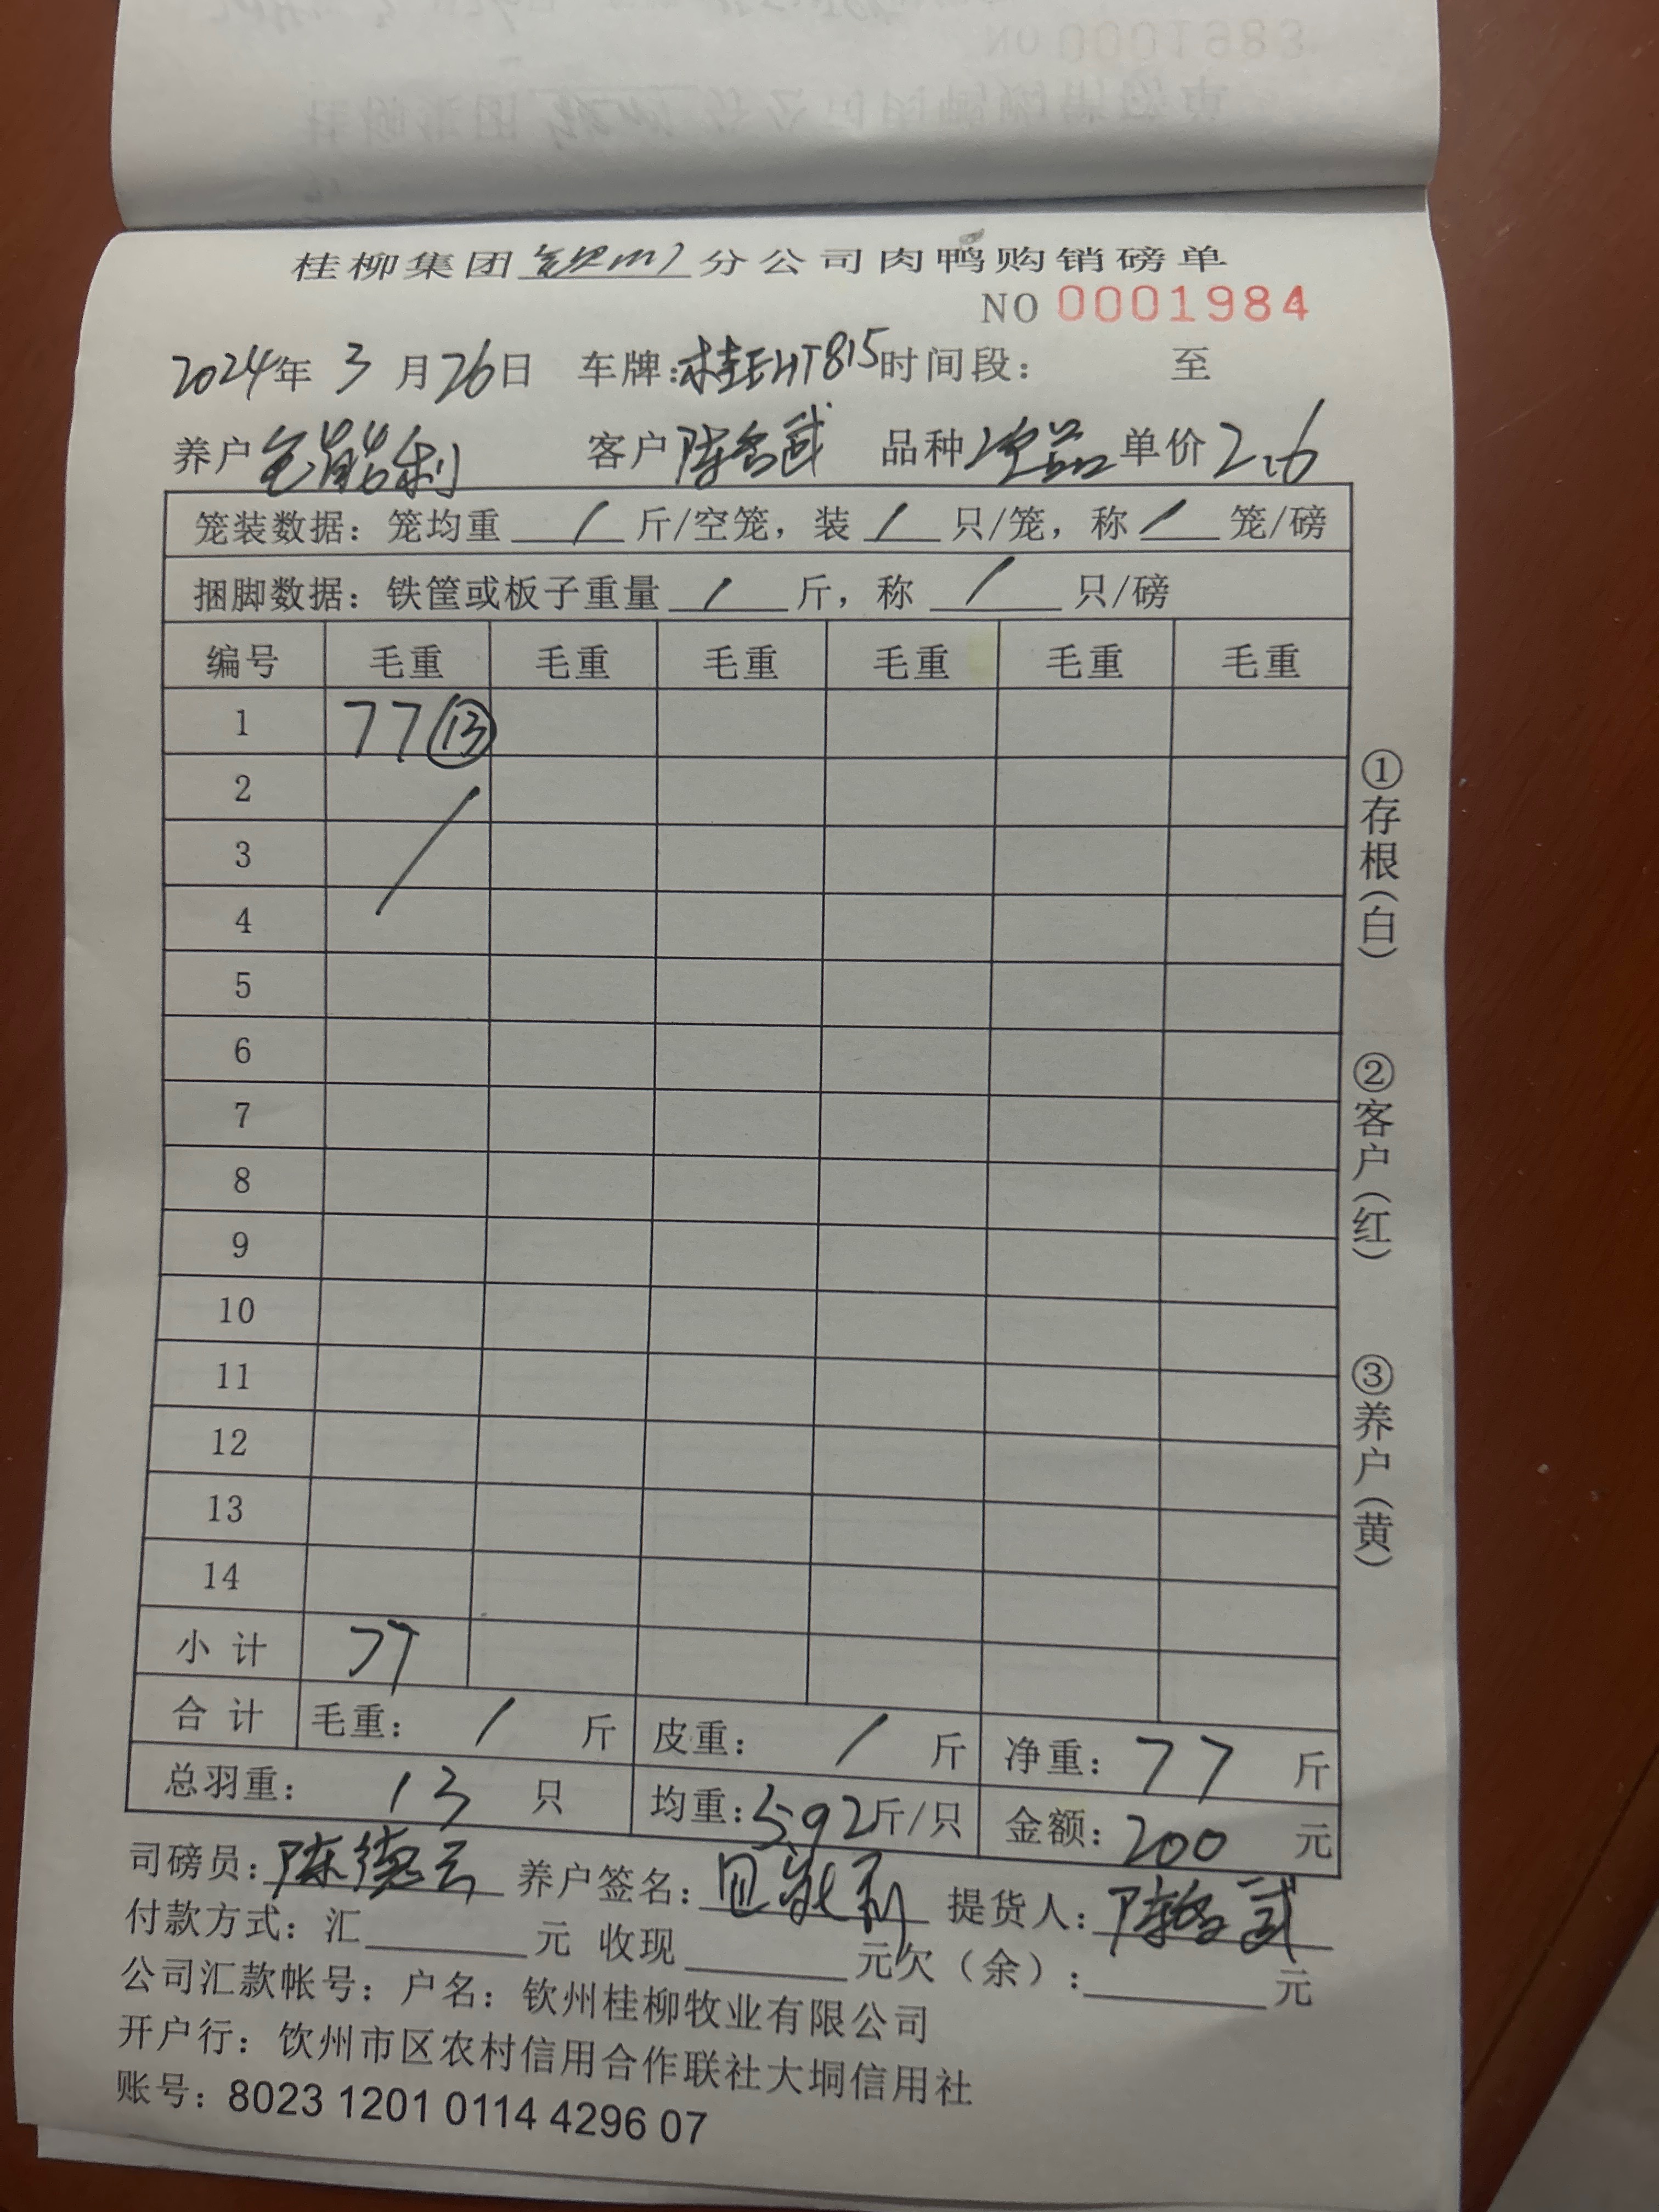 桂柳集团钦州分公司肉鸭购销磅单
NO 0001984
2024年 3月26日 车牌:桂EHT815时间段: 至
养户 客户 陈名武 品种 次品 单价 2.6
笼装数据: 笼均重 / 斤/空笼, 装 / 只/笼, 称 / 笼/磅
捆脚数据: 铁筐或板子重量 / 斤, 称 / 只/磅
编号 毛重 毛重 毛重 毛重 毛重 毛重
1 77 ⑬
2
3
4
5
6
7
8
9
10
11
12
13
14
小计 77
合计 毛重: / 斤 皮重: / 斤 净重: 77 斤
总羽重: 13 只 均重: 5.92斤/只 金额: 200 元
司磅员: 陈德云 养户签名: 提货人: 陈名武
付款方式: 汇 元 收现 元欠(余): 元
公司汇款帐号: 户名: 钦州桂柳牧业有限公司
开户行: 钦州市区农村信用合作联社大垌信用社
账号: 8023 1201 0114 4296 07
①存根(白)
②客户(红)
③养户(黄)